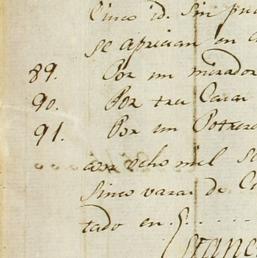 Cinco id. sin pu
se aprician en c
89. Por un mirador
90. Por tres Casas
91. Por un Potrero
ocho mil se
sinco varas de
tado en